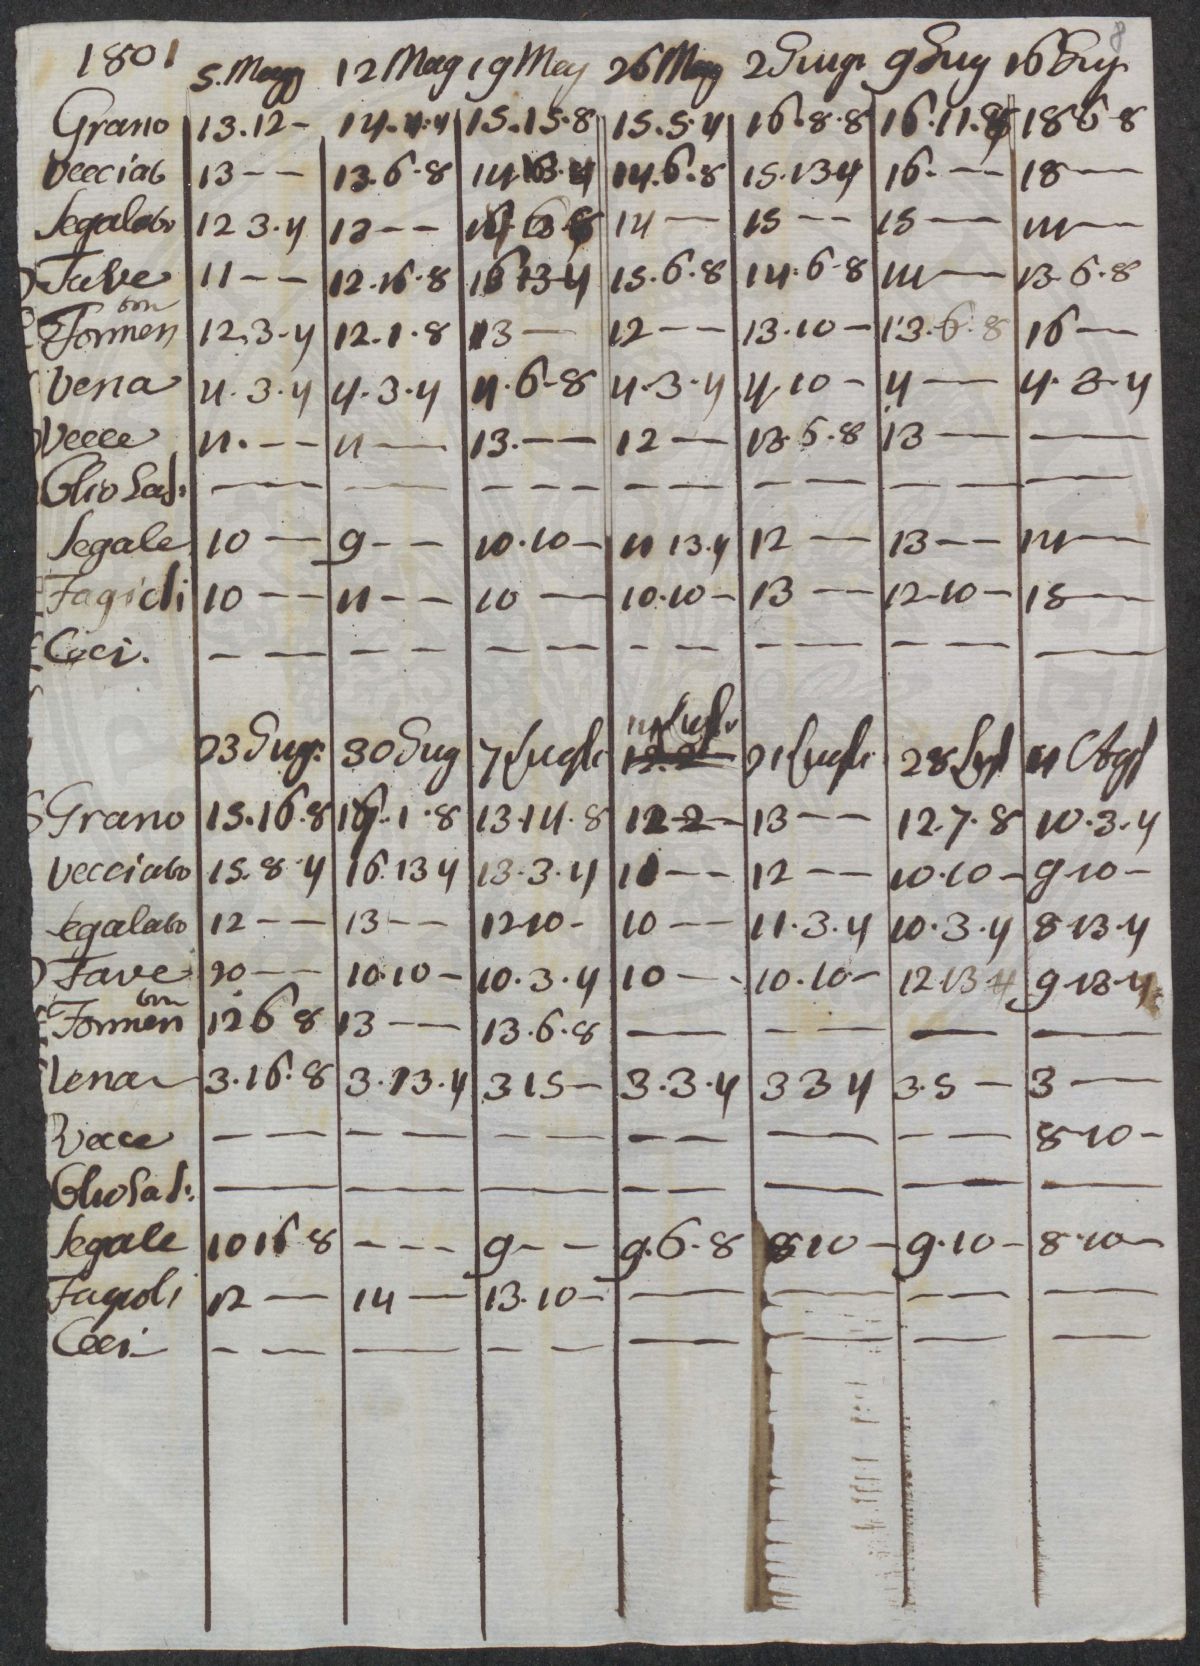 8
1801 5. Magg 12 Mag 19 Mag 26 Magg 2 Giugn 9 Giug 16 Giug
Grano 13.12 - 14.4.4 15.15.8 15.5.4 16.8.8 16.11.8 18 6 8
Vecciato 13 - - 13.6.8 14.13.4 14.6.8 15.13 4 16. - - 18 - -
Segalato 12 3.4 12 - - 14 - - 15 - - 15 - - 14 - -
Fave 11 - - 12.16.8 16 13 4 15.6.8 14.6.8 14 - - 13.6.8
Formenton 12.3.4 12.1.8 13 - 12 - - 13.10 - 13.6.8 16 -
Vena 4.3.4 4.3.4 4.6.8 4.3.4 4.10 - 4 - - 4.3.4
Vecce 11. - - 11 - - 13. - - 12 - - 13.6.8 13 - - - -
Olio Lad: - - - - - - - - - - - - - -
Segale 10 - - 9 - - 10.10 - 11 13.4 12 - - 13 - - 14 - -
Fagioli 10 - - 11 - - 10 - - 10.10 - 13 - - 12.10 - 15 - -
Ceci. - - - - - - - - - - - - - -
23 Giug: 30 Giug 7 Luglio 14 Luglio 21 Luglio 28 Lugl 4 Agst
Grano 15.16.8 16.1.8 13.14.8 12 2 - 13 - - 12.7.8 10.3.4
Vecciato 15.8.4 16.13 4 13.3.4 11 - - 12 - - 10.10 - 9.10 -
Segalato 12 - - 13 - - 12 10 - 10 - - 11.3.4 10.3.4 8.13.4
Fave 10 - - 10.10 - 10.3.4 10 - - 10.10 - 12.13 4 9.13.4
Formenton 12 6 8 13 - - 13.6.8 - - - - - - - -
Vena 3.16.8 3.13.4 3 15 - 3.3.4 3 3 4 3.5 - 3 - -
Vecce - - - - - - - - - - - - 8.10 -
Olio Lad: - - - - - - - - - - - - - -
Segale 10 16 8 - - - 9 - - 9.6.8 8 10 - 9.10 - 8.10 -
Fagioli 12 - - 14 - - 13.10 - - - - - - - - -
Ceci - - - - - - - - - - - - - -